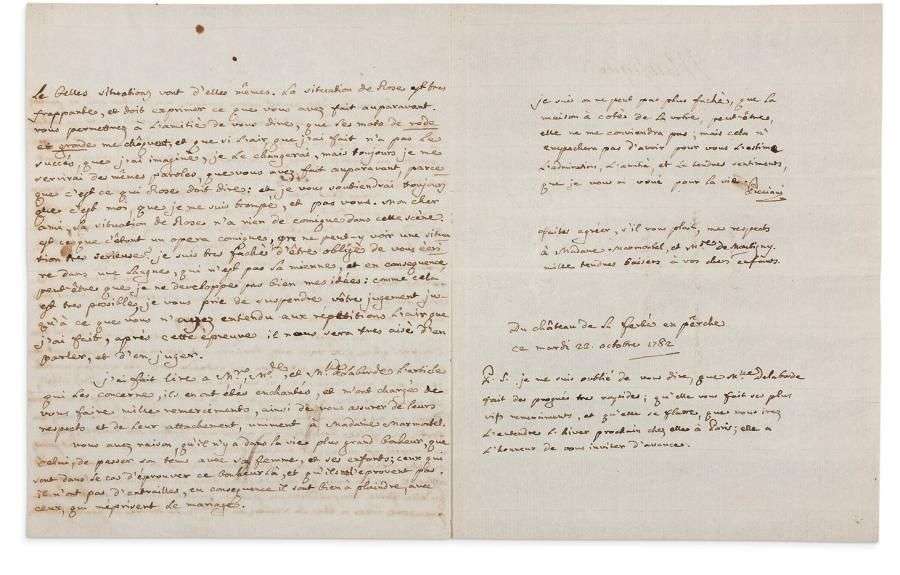 les belles situations vont d'elles mêmes. La situation de Rose est tres
frappante, et doit exprimer ce que vous avez fait auparavant.
vous permettrez à l'amitié de vous dire, que les mots de rode
et gronde me choquent, et que si l'air que j'ai fait n'a pas le
succés, que j'ai imaginé, je le changerai, mais toujours je me
servirai des mêmes paroles, que vous avez fait auparavant, parce
que c'est ce qui Rose doit dire: et je vous soutiendrai toujours
que c'est moi, que je me suis trompé, et pas vous. Mon cher
ami, la situation de Rose n'a rien de comique dans cette scène.
est ce que c'étant un opera comique, on ne peut y voir une situa
tion tres serieuse? je suis tres fachés d'être obligés de vous écri
re dans une langue, qui n'est pas la mienne, et en consequence
peut-être que je ne developpe pas bien mes idées: comme cela
est tres possible, je vous prie de suspendre vôtre jugement jus-
qu'à ce que vous n'ayez entendu aux repetitions l'air que
j'ai fait, après cette épreuve il nous sera tres aisé d'en
parler, et d'en juger.
j'ai fait lire a Mr., Mde, et Mlle Delaborde l'article
qui les concerne, ils en ont étés enchantés, et m'ont chargés de
vous faire mille remerciments, ainsi de vous assurer de leurs
respects et de leur attachement, uniment à Madame Marmontel.
vous avez raison, qu'il n'y a dans la vie plus grand bonheur, que
celui, de passer son tems avec sa femme, et ses enfants; ceux qui
sont dans le cas d'éprouver ce bonheur là, et qu'ils ne l'éprouvent pas.
ils n'ont pas d'entrailles, en consequence il sont bien à plaindre, avec
ceux, qui méprisent le mariage.
je suis on ne peut pas plus fachés, que la
maison a cotés de la votre, peut-être,
elle ne me conviendra pas; mais cela n'
empechera pas d'avoir pour vous l'estime
l'admiration, l'amitié, et les tendres sentiments,
que je vous ai voué pour la vie. Piccinni
faites agréer, s'il vous plait, mes respects
à Madame Marmontel, et Mde de Montigny.
mille tendres baisers à vos chers enfants.
Du château de la fertés en pêrche
ce mardi 22. octobre 1782
P. S. je me suis oublié de vous dire, que Mlle Delaborde
fait des progrés tres rapides; qu'elle vous fait ses plus
vifs remerciments, et qu'elle se flatte, que vous irez
l'entendre l'hiver prochain chez elle à Paris; elle a
l'honneur de vous inviter d'avance.